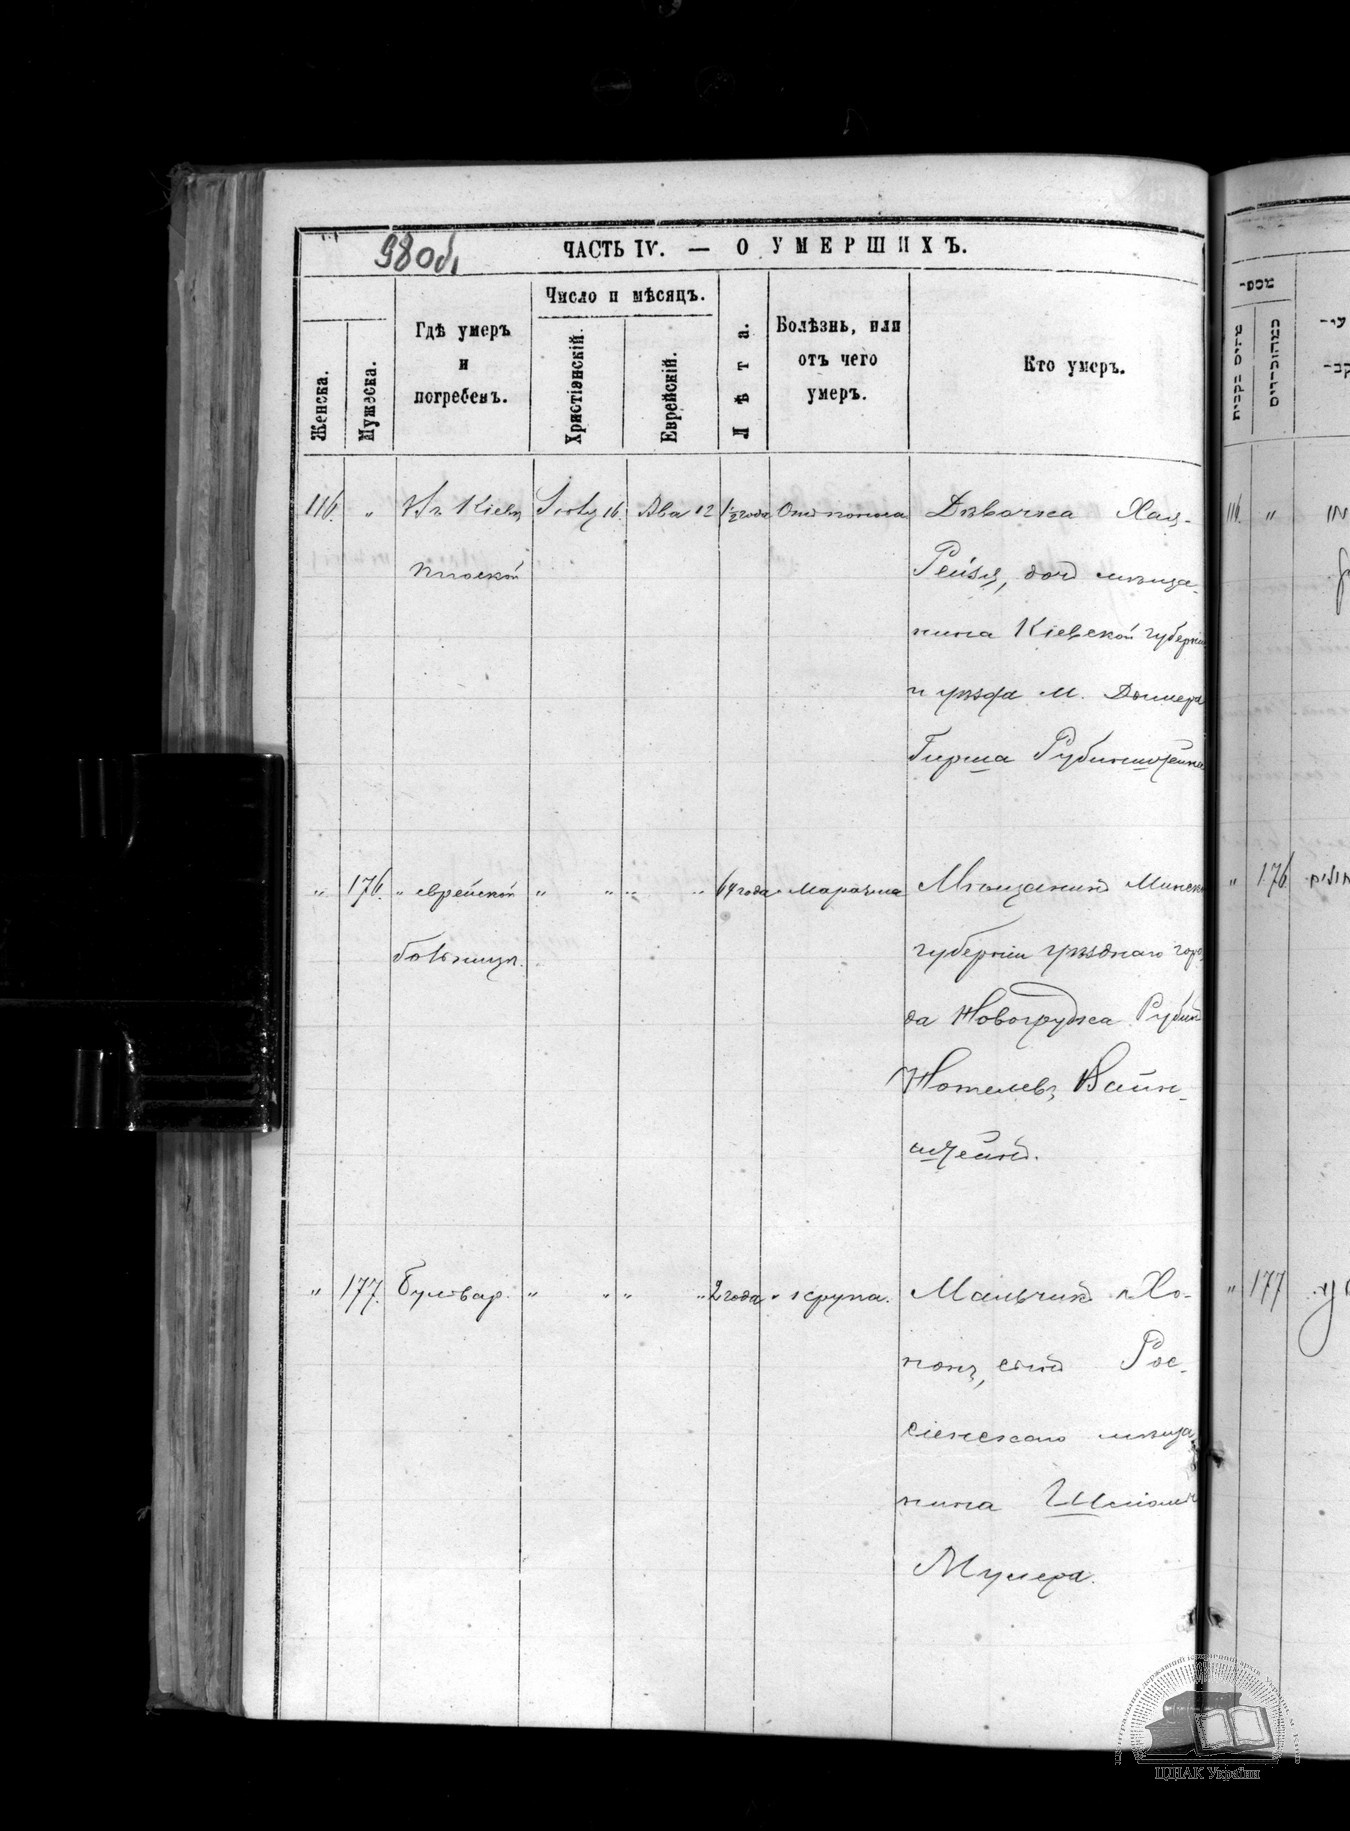 98 об
ЧАСТЬ IV. — О УМЕРШИХЪ.
Женска.
Мужеска.
Гдѣ умеръ
и
погребенъ.
Число и мѣсяцъ.
Христіянскій.
Еврейскій.
Лѣта.
Болѣзнь, или
отъ чего
умеръ.
Кто умеръ.
116. " Въ Кіевѣ Іюля 16. Ава 12 1½ года Отъ поноса Дѣвочка Хая-
плоской Рейзя, дочь мѣща-
нина Кіевской губерніи
и уѣзда м. Дымера
Гирша Рубинштейна
" 176. " еврейской " " " " 64 года " Маразма Мѣщанинъ Минской
больницѣ. губерніи уѣзднаго горо-
да Новогрудка Рубинъ
Нотелевъ Вайн-
штейнъ.
" 177. Бульвар. " " " " 2 года " крупа. Мальчикъ Хо-
нонъ, сынъ Рос-
сіенскаго мѣща-
нина
Мулера.
116. "
" 176.
" 177
ЦДІАК України